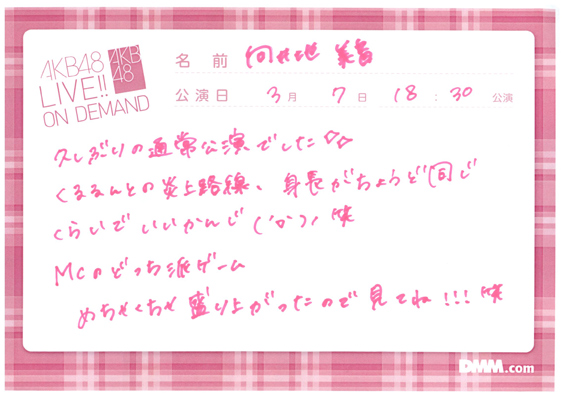 AKB48
LIVE!!
ON DEMAND
AKB
48
名前 向井地 美音
公演日 3月 7日 18:30 公演
久しぶりの通常公演でした♡♡
くるるんとの炎上路線、身長がちょうど同じ
くらいでいいかんじ('か')ノ笑
MCのどっち派ゲーム
めちゃくちゃ盛り上がったので見てね!!!笑
DMM.com